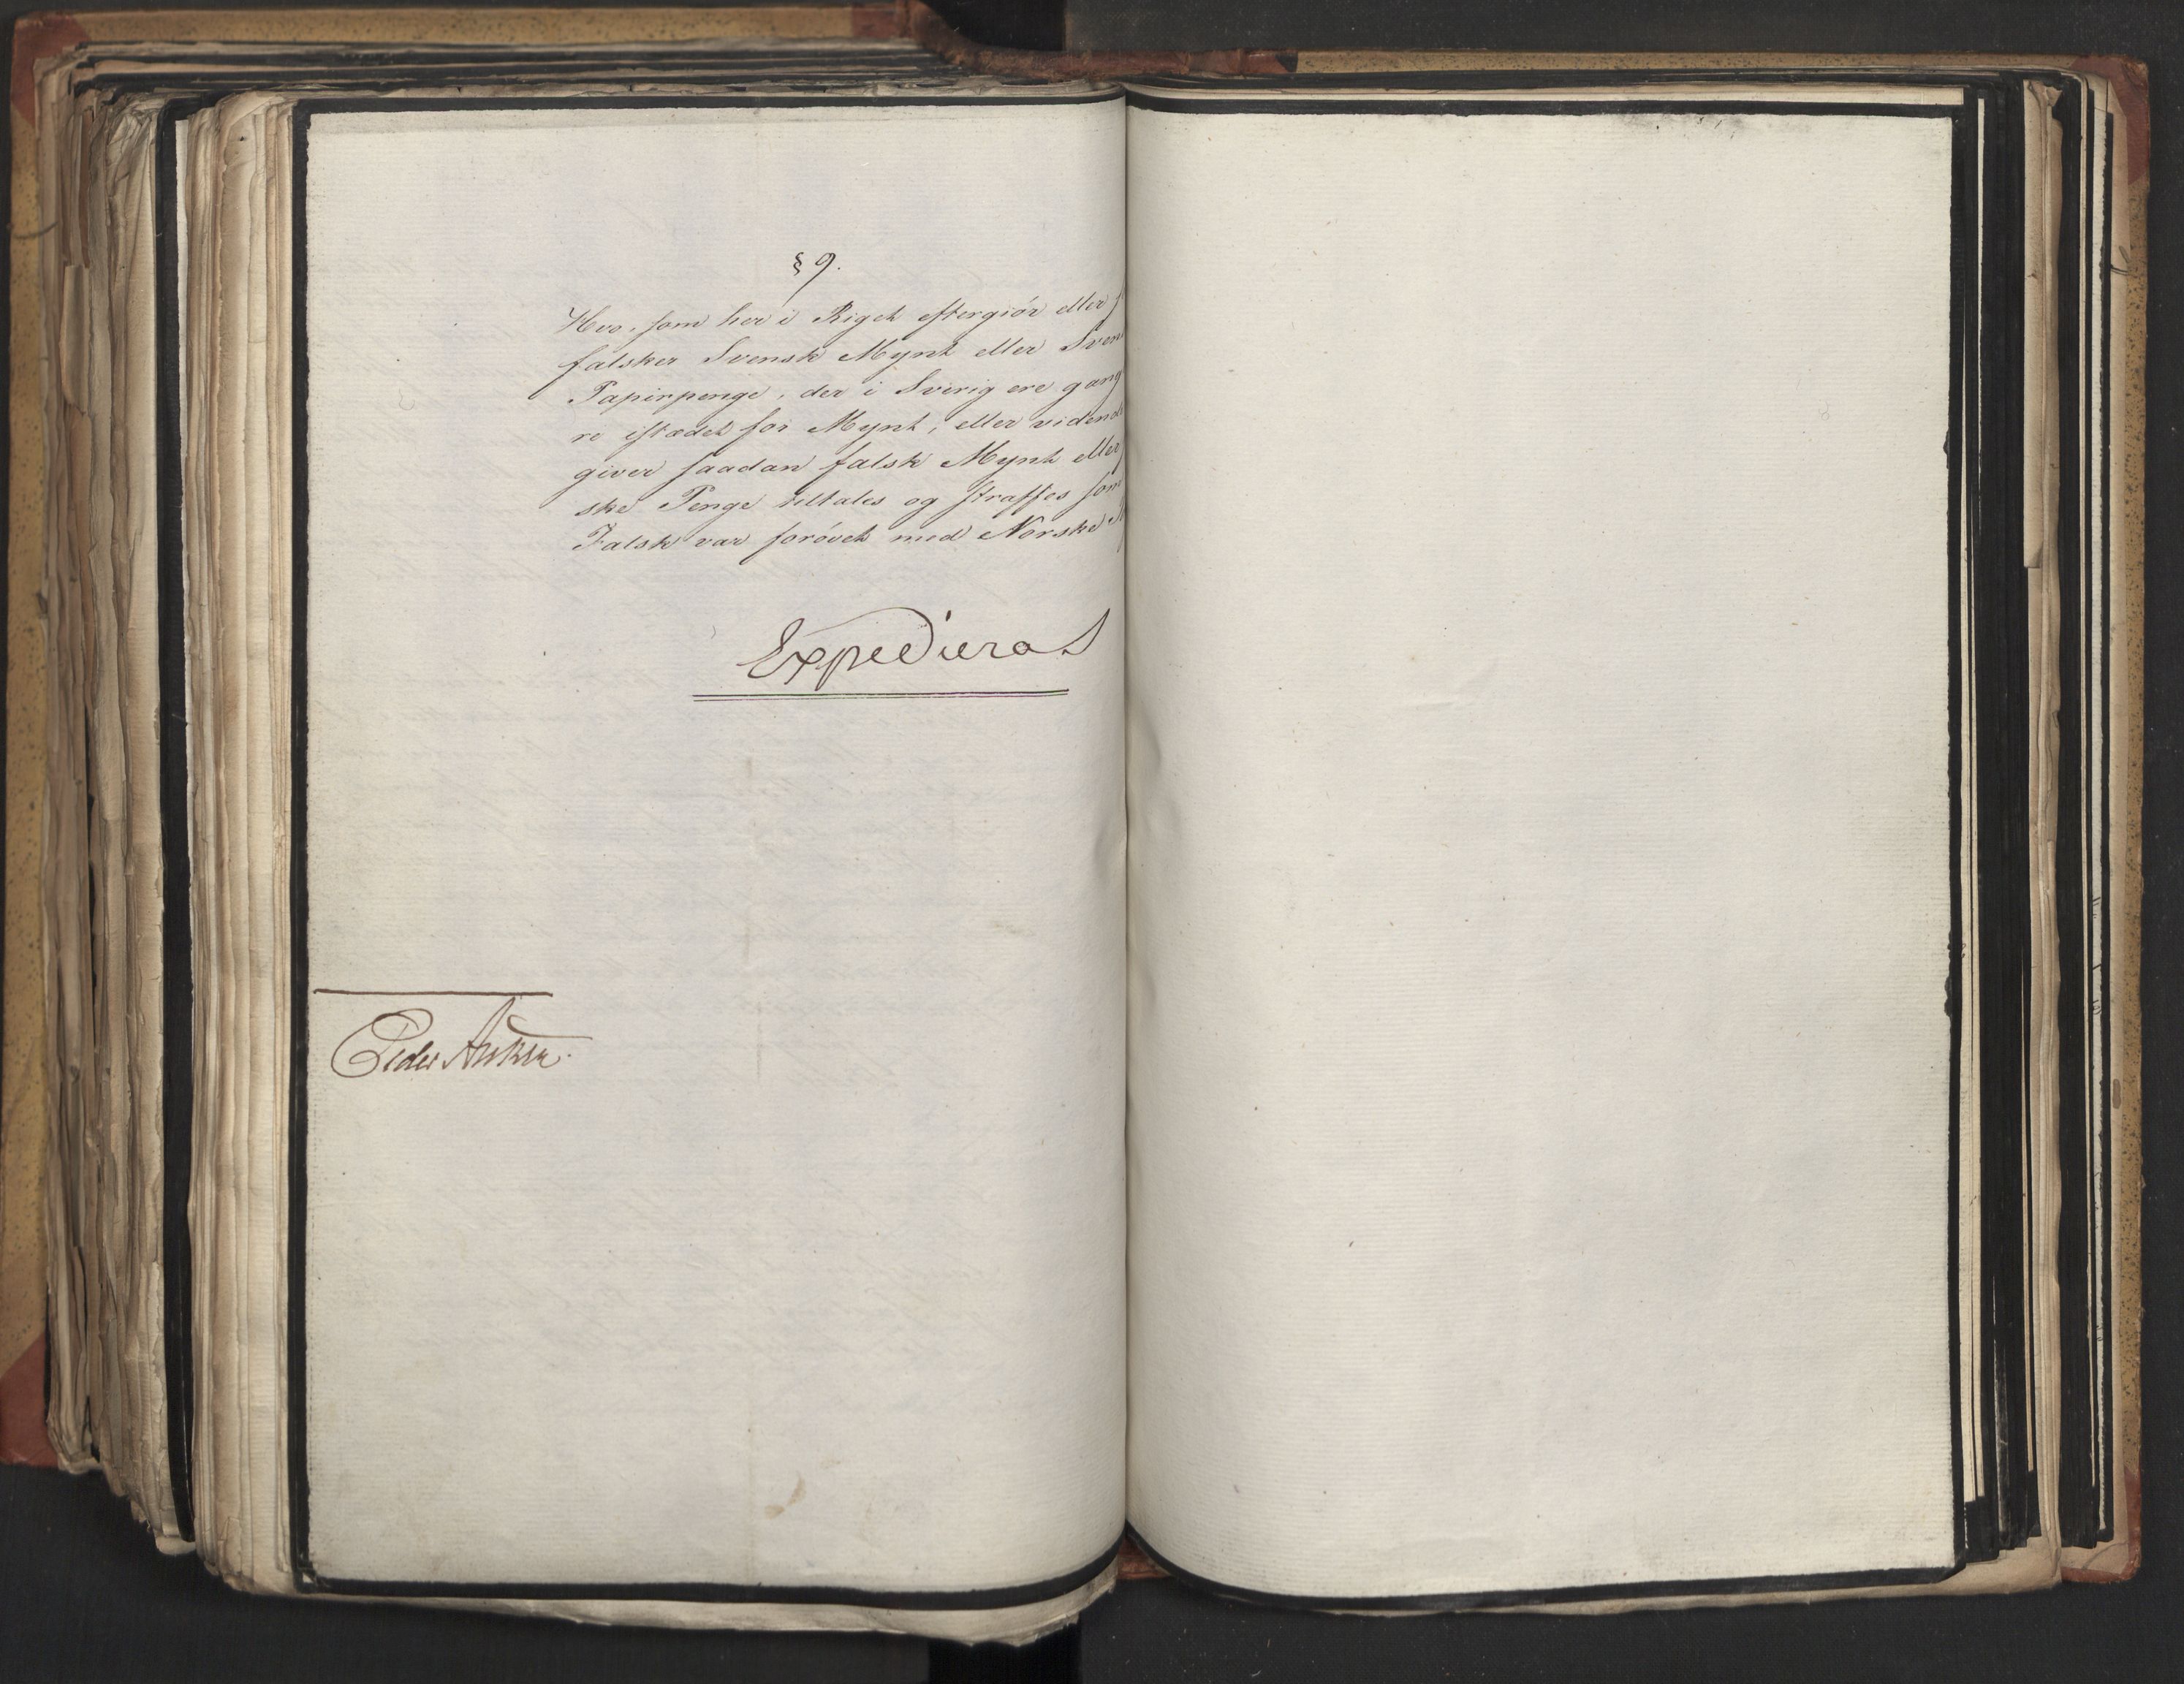 § 9.
Hvo, som her i Riget eftergiør eller
falsker Svensk Mynt eller Sven
Papirpenge, der i Sverig ere gang
re istædet for Mynt, eller vidend
giver saadan falsk Mynt eller
ske Penge tiltales og straffes som
Falsk var forøvet med Norske
Expedieras
Peder Anker.